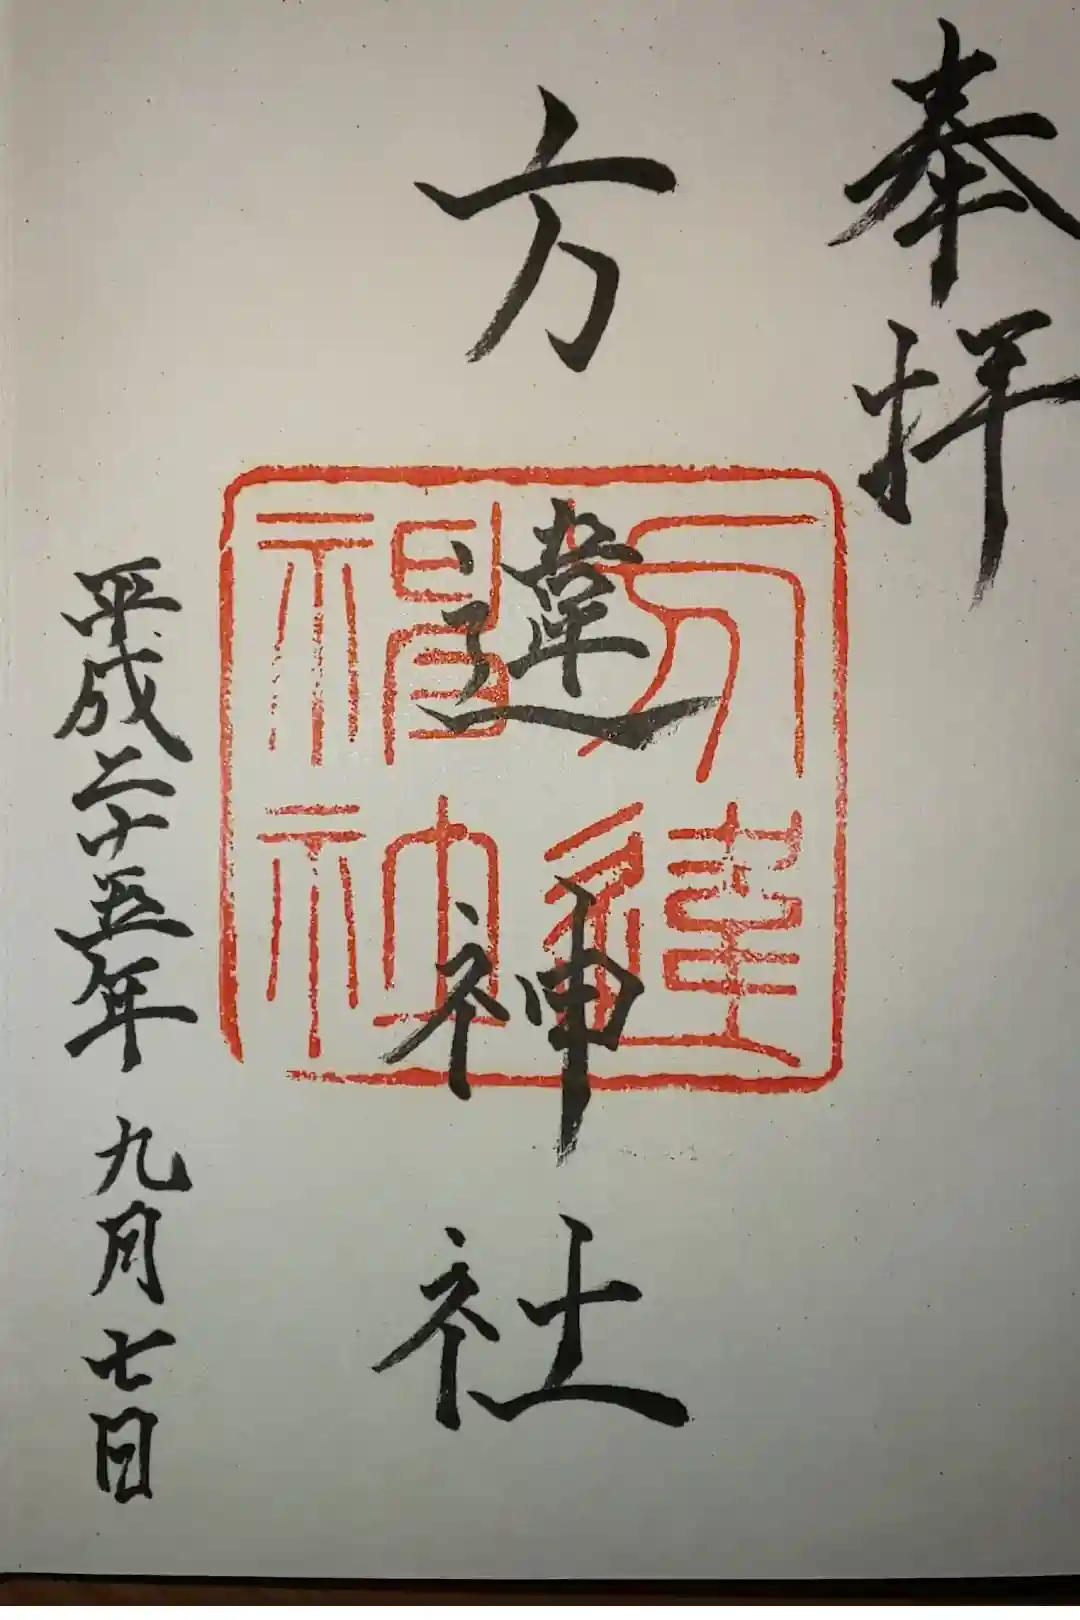 奉拝
方違神社
方違神社
平成二十五年 九月七日